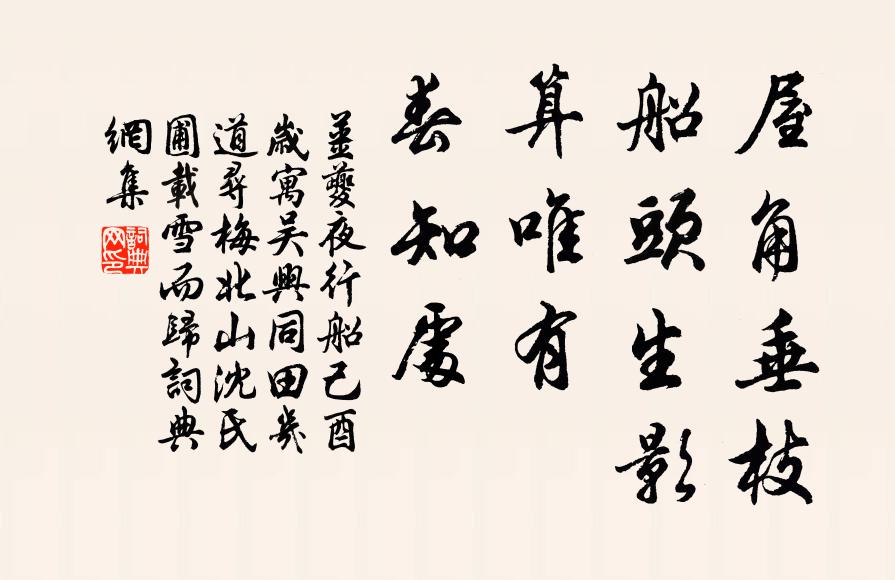 屋角垂枝
船頭生影
算唯有
春知處
薑夔夜行船己酉
歲寓吴興同田幾
道尋梅北山沈氏
圃載雪而歸詞典
網集
詞典網印